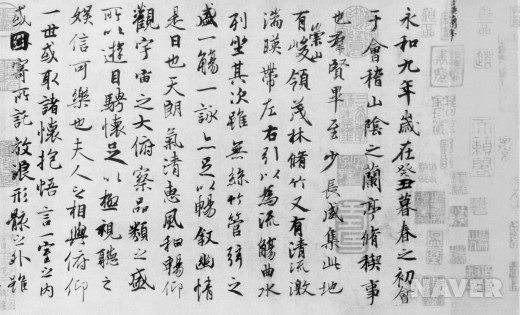 永和九年歲在癸丑暮春之初會
于會稽山陰之蘭亭脩稧事
也羣賢畢至少長咸集此地
有崇山峻領茂林脩竹又有清流激
湍暎帶左右引以為流觴曲水
列坐其次雖無絲竹管弦之
盛一觴一詠亦足以暢敘幽情
是日也天朗氣清惠風和暢仰
觀宇宙之大俯察品類之盛
所以遊目騁懷足以極視聽之
娛信可樂也夫人之相與俯仰
一世或取諸懷抱悟言一室之內
或因寄所託放浪形骸之外雖
NAVER